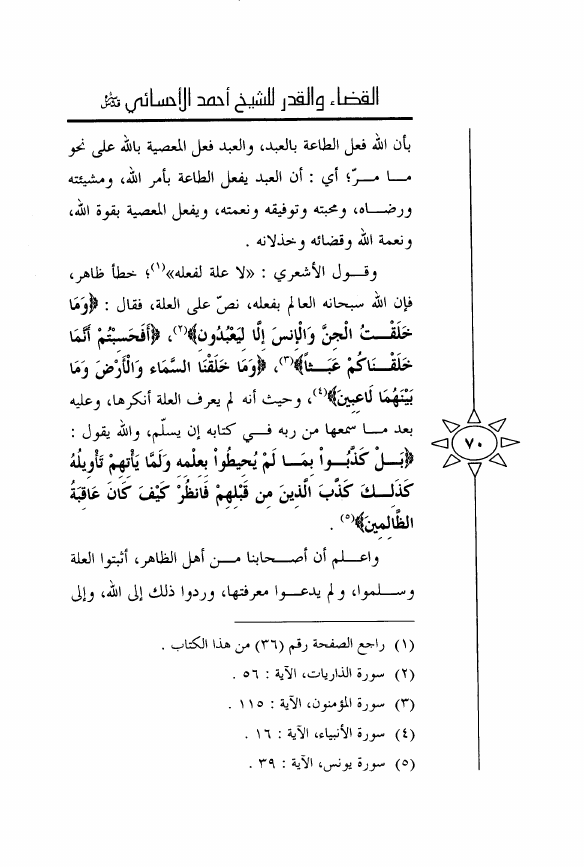 القضاء والقدر للشيخ أحمد الأحسائي
بأن الله فعل الطاعة بالعبد، والعبد فعل المعصية بالله على نحو
مـا مـرّ؛ أي : أن العبد يفعل الطاعة بأمر الله، ومشيئته
ورضـاه، ومحبته وتوفيقه ونعمته، ويفعل المعصية بقوة الله،
ونعمة الله وقضائه وخذلانه .
وقـول الأشعري : «لا علة لفعله»(١)؛ خطأ ظاهر،
فإن الله سبحانه العالم بفعله، نصّ على العلة، فقال : ﴿وَمَا
خَلَقْـتُ الْجِنَّ وَالْإِنسَ إِلَّا لِيَعْبُدُونِ﴾(٢)، ﴿أَفَحَسِبْتُمْ أَنَّمَا
خَلَقْـنَاكُمْ عَبَـثاً﴾(٣)، ﴿وَمَا خَلَقْنَا السَّمَاء وَالْأَرْضَ وَمَا
بَيْنَهُمَا لَاعِبِينَ﴾(٤)، وحيث أنه لم يعرف العلة أنكرها، وعليه
بعد مـا سمعها من ربه فـي كتابه إن يسلّم، والله يقول :
﴿بَـلْ كَذَّبُـواْ بِمَـا لَمْ يُحِيطُواْ بِعِلْمِهِ وَلَمَّا يَأْتِهِمْ تَأْوِيلُهُ
كَذَلِـكَ كَذَّبَ الَّذِينَ مِن قَبْلِهِمْ فَانظُرْ كَيْفَ كَانَ عَاقِبَةُ
الظَّالِمِينَ﴾(٥) .
واعـلـم أن أصـحابنا مـن أهل الظاهر، أثبتوا العلة
وسـلموا، ولم يدعـوا معرفتها، وردوا ذلك إلى الله، وإلى
٧٠
(١) راجع الصفحة رقم (٣٦) من هذا الكتاب .
(٢) سورة الذاريات، الآية : ٥٦ .
(٣) سورة المؤمنون، الآية : ١١٥ .
(٤) سورة الأنبياء، الآية : ١٦ .
(٥) سورة يونس، الآية : ٣٩ .